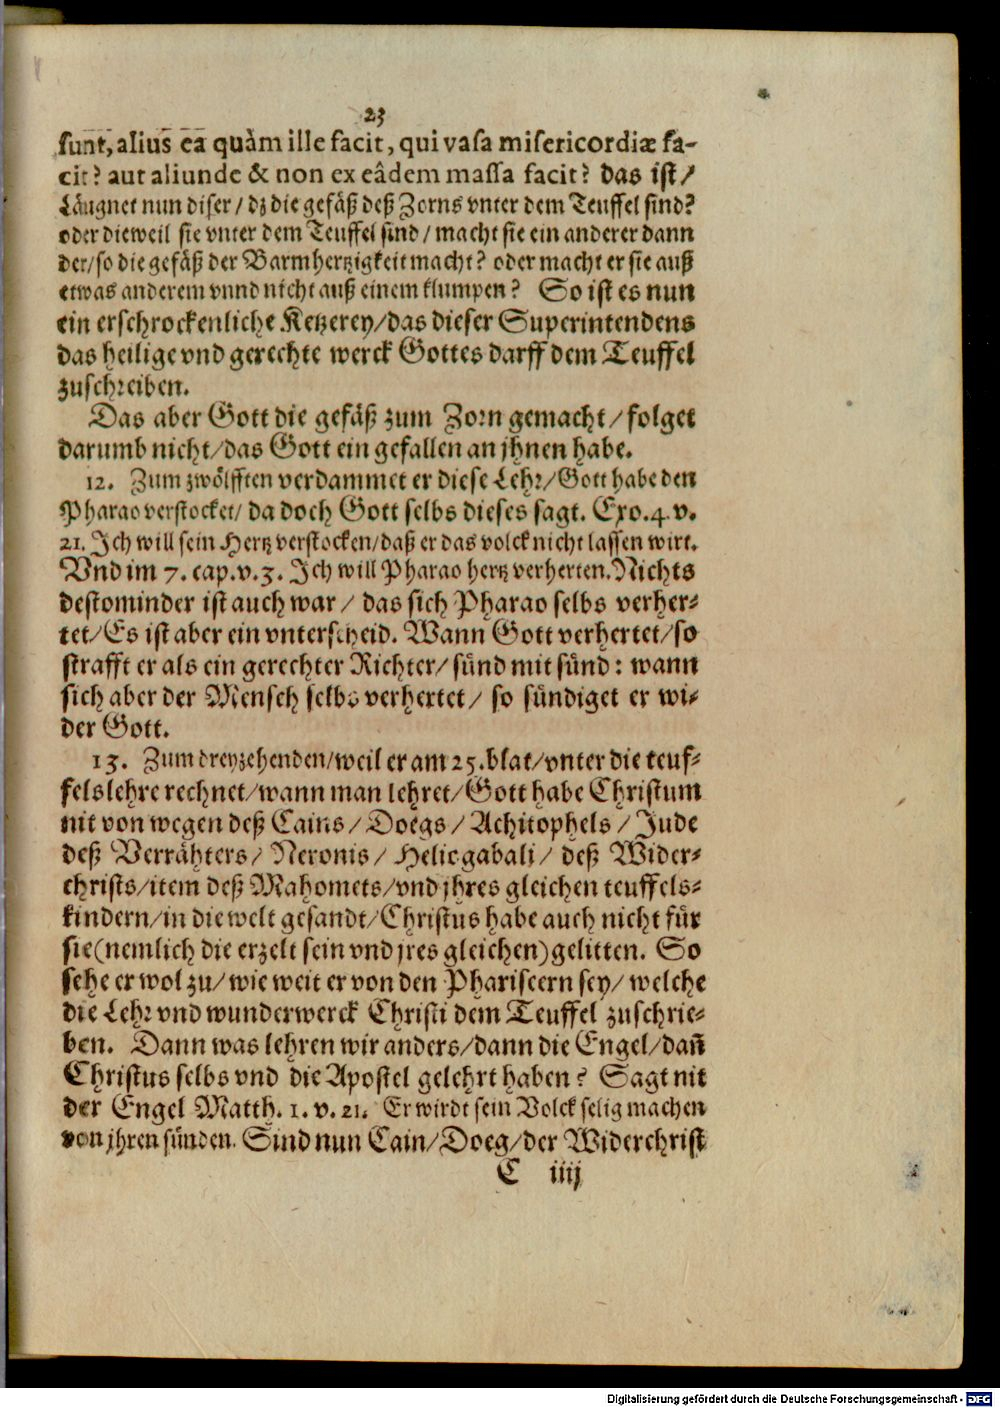 23
sunt, alius ea quàm ille facit, qui vasa misericordiæ fa-
cit? aut aliunde & non ex eâdem massa facit? das ist/
Läugnet nun diser/ dz die gefäß deß Zorns vnter dem Teuffel sind?
oder dieweil sie vnter dem Teuffel sind/ macht sie ein anderer dann
der/ so die gefäß der Barmhertzigkeit macht? oder macht er sie auß
etwas anderem vnnd nicht auß einem klumpen? So ist es nun
ein erschrockenliche Ketzerey/ das dieser Superintendens
das heilige vnd gerechte werck Gottes darff dem Teuffel
zuschreiben.
Das aber Gott die gefäß zum Zorn gemacht/ folget
darumb nicht/ das Gott ein gefallen an jhnen habe.
12. Zum zwölfften verdammet er diese Lehr/ Gott habe den
Pharao verstocket/ da doch Gott selbs dieses sagt. Exo. 4. v.
21. Ich will sein Hertz verstocken/ daß er das volck nicht lassen wirt.
Vnd im 7. cap. v. 3. Ich will Pharao hertz verherten. Nichts
destominder ist auch war/ das sich Pharao selbs verher-
tet/ Es ist aber ein vnterscheid. Wann Gott verhertet/ so
strafft er als ein gerechter Richter/ sünd mit sünd: wann
sich aber der Mensch selbs verhertet/ so sündiget er wi-
der Gott.
13. Zum dreyzehenden/ weil er am 25. blat/ vnter die teuf-
felslehre rechnet/ wann man lehret/ Gott habe Christum
nit von wegen deß Cains/ Doegs/ Achitophels/ Jude
deß Verrähters/ Neronis/ Heliogabali/ deß Wider-
christs/ item deß Mahomets/ vnd jhres gleichen teuffels-
kindern/ in die welt gesandt/ Christus habe auch nicht für
sie (nemlich die erzelt sein vnd jres gleichen) gelitten. So
sehe er wol zu/ wie weit er von den Phariseern sey/ welche
die Lehr vnd wunderwerck Christi dem Teuffel zuschrie-
ben. Dann was lehren wir anders/ dann die Engel/ dañ
Christus selbs vnd die Apostel gelehrt haben? Sagt nit
der Engel Matth. 1. v. 21. Er wirdt sein Volck selig machen
von jhren sünden. Sind nun Cain/ Doeg/ der Widerchrist
C iiij
Digitalisierung gefördert durch die Deutsche Forschungsgemeinschaft - DFG